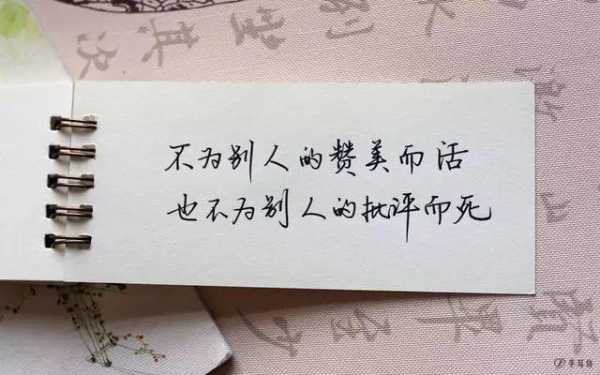 不为别人的赞美而活
也不为别人的批评而死